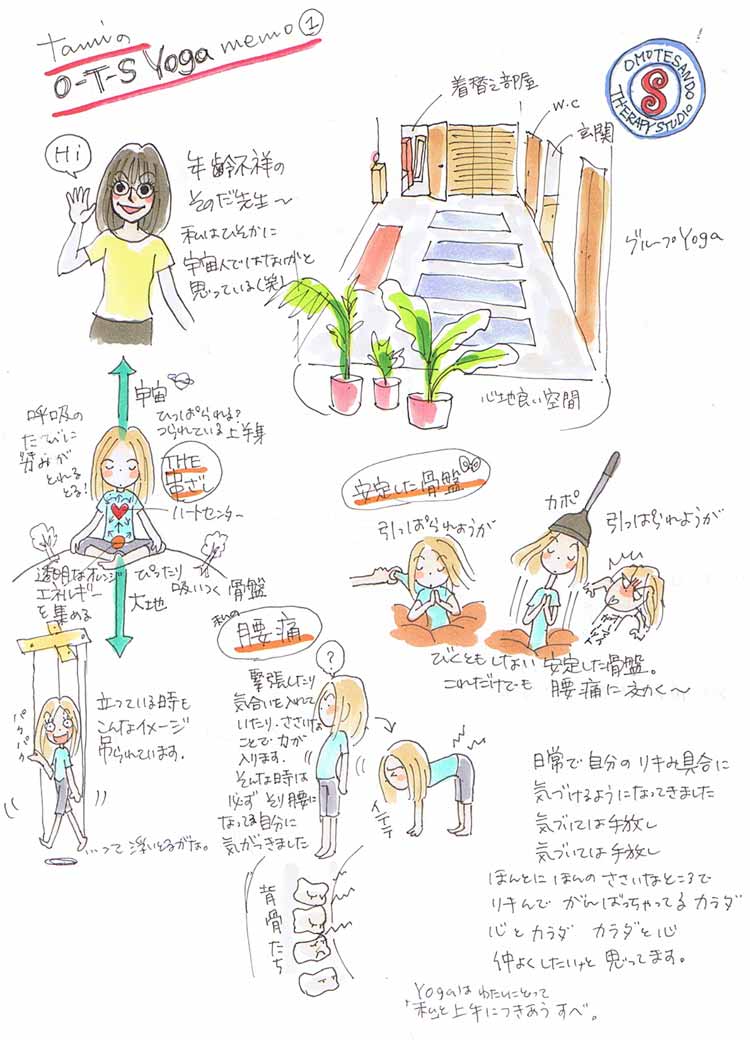 tamiの
O-T-S Yoga memo①
OMOTESANDO
THERAPY STUDIO
S
Hi
年齢不祥の
そのだ先生〜
私はひそかに
宇宙人ではないかと
思っている(笑)
着替え部屋
w.c
玄関
グループYoga
心地良い空間
宇宙
ひっぱられる?
つられている上半身
呼吸の
たびに
歪みが
とれる
とる!
THE
串ざし
ハートセンター
透明なオレンジ
エネルギー
を集める
ぴったり
吸いつく骨盤
大地
安定した骨盤
引っぱられようが
カポ
引っぱられようが
びくともしない安定した骨盤。
これだけでも腰痛に効く〜
パクパク
立っている時も
こんなイメージ
吊られています。
…って浮いとるがな。
私の
腰痛
緊張したり
気合いを入れて
いたり、ささいな
ことで力が
入ります。
そんな時は
必ずそり腰に
なってる自分に
気がつきました
?
イテテ
背骨たち
日常で自分のリキみ具合に
気づけるようになってきました
気づいては手放し
気づいては手放し
ほんとにほんのささいなところで
リキんでがんばっちゃってるカラダ
心とカラダ カラダと心
仲よくしたいと思ってます。
Yogaはわたしにとって
「私と上手につきあうすべ。